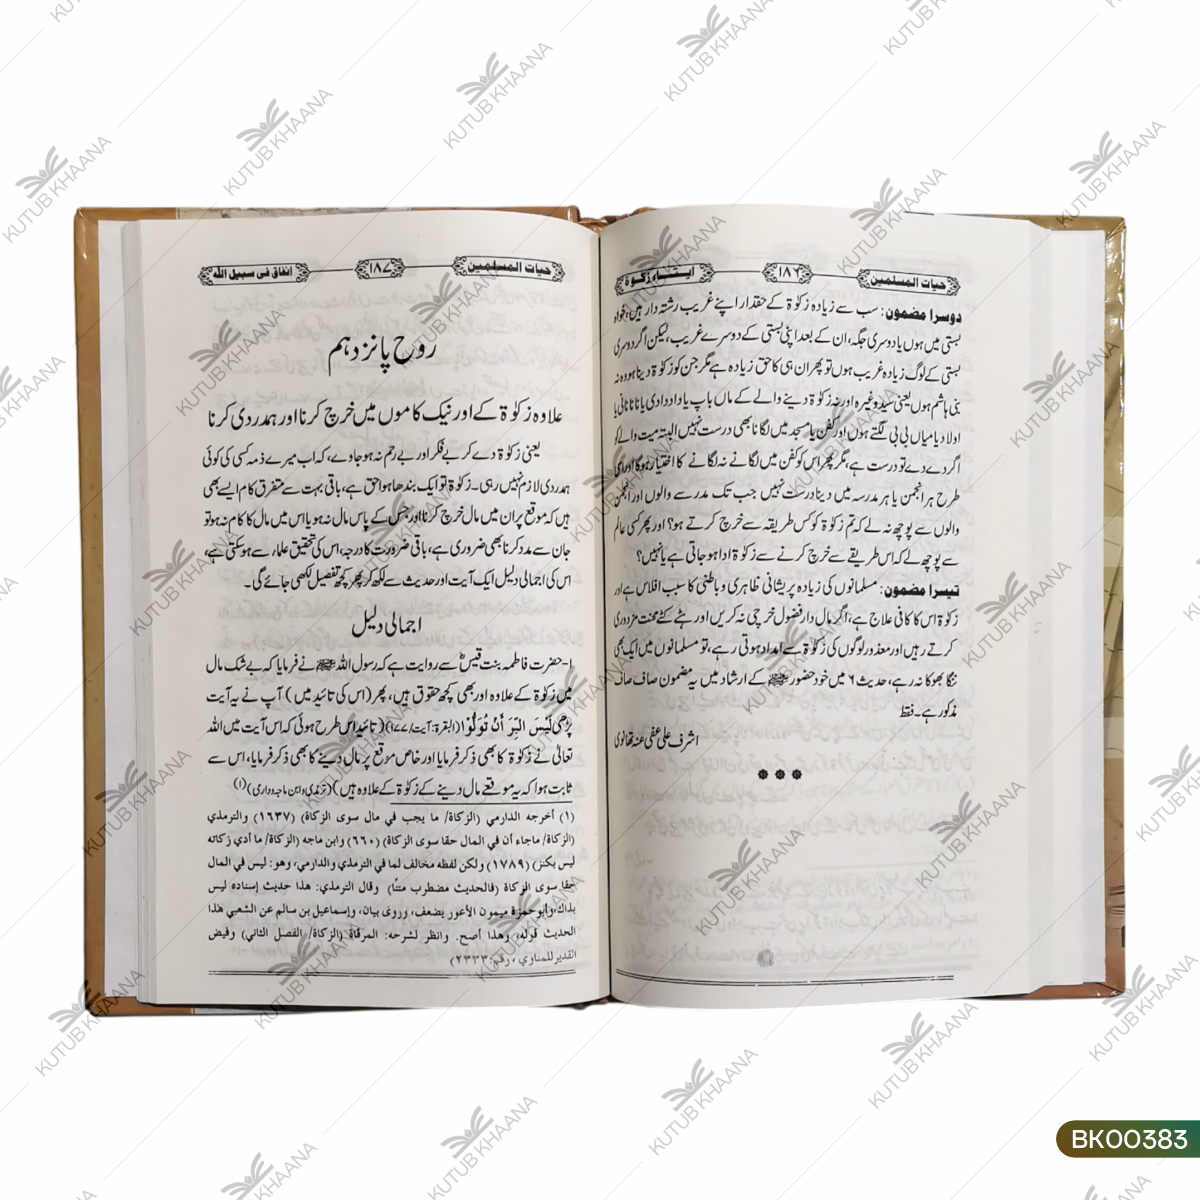 حیات المسلمین ۱۸۶ ایتــاء زکوٰۃ
دوسرا مضمون: سب سے زیادہ زکوٰۃ کے حقدار اپنے غریب رشتہ دار ہیں، خواہ
بستی میں ہوں یا دوسری جگہ، ان کے بعد اپنی بستی کے دوسرے غریب، لیکن اگر دوسری
بستی کے لوگ زیادہ غریب ہوں تو پھر ان ہی کا حق زیادہ ہے مگر جن کو زکوٰۃ دینا ہو وہ نہ
بنی ہاشم ہوں یعنی سید وغیرہ اور نہ زکوٰۃ دینے والے کے ماں باپ یا دادا دادی یا نانا نانی یا
اولاد یا میاں بی بی لگتے ہوں اور کفن یا مسجد میں لگانا بھی درست نہیں البتہ میت والے کو
اگر دے دے تو درست ہے، مگر پھر اس کو کفن میں لگانے نہ لگانے کا اختیار ہوگا اور اسی
طرح ہر انجمن یا ہر مدرسہ میں دینا درست نہیں جب تک مدرسے والوں اور انجمن
والوں سے پوچھ نہ لے کہ تم زکوٰۃ کو کس طریقہ سے خرچ کرتے ہو؟ اور پھر کسی عالم
سے پوچھ لے کہ اس طریقے سے خرچ کرنے سے زکوٰۃ ادا ہو جاتی ہے یا نہیں؟
تیسرا مضمون: مسلمانوں کی زیادہ پریشانی ظاہری و باطنی کا سبب افلاس ہے اور
زکوٰۃ اس کا کافی علاج ہے، اگر مال دار فضول خرچی نہ کریں اور ہٹے کٹے محنت مزدوری
کرتے رہیں اور معذور لوگوں کی زکوٰۃ سے امداد ہوتی رہے، تو مسلمانوں میں ایک بھی
ننگا بھوکا نہ رہے، حدیث ۶ میں خود حضور ﷺ کے ارشاد میں یہ مضمون صاف صاف
مذکور ہے۔ فقط
اشرف علی عفی عنہ تھانوی
حیات المسلمین ۱۸۷ انفاق فی سبیل اللہ
روح پانزدہم
علاوہ زکوٰۃ کے اور نیک کاموں میں خرچ کرنا اور ہمدردی کرنا
یعنی زکوٰۃ دے کر بے فکر اور بے رحم نہ ہو جاوے، کہ اب میرے ذمہ کسی کی کوئی
ہمدردی لازم نہیں رہی۔ زکوٰۃ تو ایک بندھا ہوا حق ہے، باقی بہت سے متفرق کام ایسے بھی
ہیں کہ موقع پر ان میں مال خرچ کرنا اور جس کے پاس مال نہ ہو یا اس میں مال کا کام نہ ہو تو
جان سے مدد کرنا بھی ضروری ہے، باقی ضرورت کا درجہ، اس کی تحقیق علماء سے ہو سکتی ہے،
اس کی اجمالی دلیل ایک آیت اور حدیث سے لکھ کر پھر کچھ تفصیل لکھی جائے گی۔
اجمالی دلیل
۱- حضرت فاطمہ بنت قیسؓ سے روایت ہے کہ رسول اللہ ﷺ نے فرمایا کہ بے شک مال
میں زکوٰۃ کے علاوہ اور بھی کچھ حقوق ہیں، پھر (اس کی تائید میں) آپ نے یہ آیت
پڑھی لَیْسَ الْبِرَّ اَنْ تُوَلُّوْا (البقرۃ: آیت/۱۷۷) (تائید اس طرح ہوئی کہ اس آیت میں اللہ
تعالیٰ نے زکوٰۃ کا بھی ذکر فرمایا اور خاص موقع پر مال دینے کا بھی ذکر فرمایا، اس سے
ثابت ہوا کہ یہ موقعے مال دینے کے زکوٰۃ کے علاوہ ہیں) (ترمذی وابن ماجہ ودارمی) (۱)
(۱) أخرجه الدارمي (الزكاة/ ما يجب في مال سوى الزكاة) (۱۶۳۷) والترمذي
(الزكاة/ ماجاء أن في المال حقا سوى الزكاة) (۶۶۰) وابن ماجه (الزكاة/ ما أدي زكاته
ليس بكنز) (۱۷۸۹) ولكن لفظه مخالف لما في الترمذي والدارمي، وهو: ليس في المال
حقا سوى الزكاة (فالحديث مضطرب متنًا) وقال الترمذي: هذا حديث إسناده ليس
بذاك، وأبوحمزة ميمون الأعور يضعف، وروى بيان، وإسماعيل بن سالم عن الشعبي هذا
الحديث قوله، وهذا أصح. وانظر لشرحه: المرقاة (الزكاة/ الفصل الثاني) وفيض
القدير للمناوي، رقم: ۲۳۳۳)
KUTUB KHAANA
BK00383